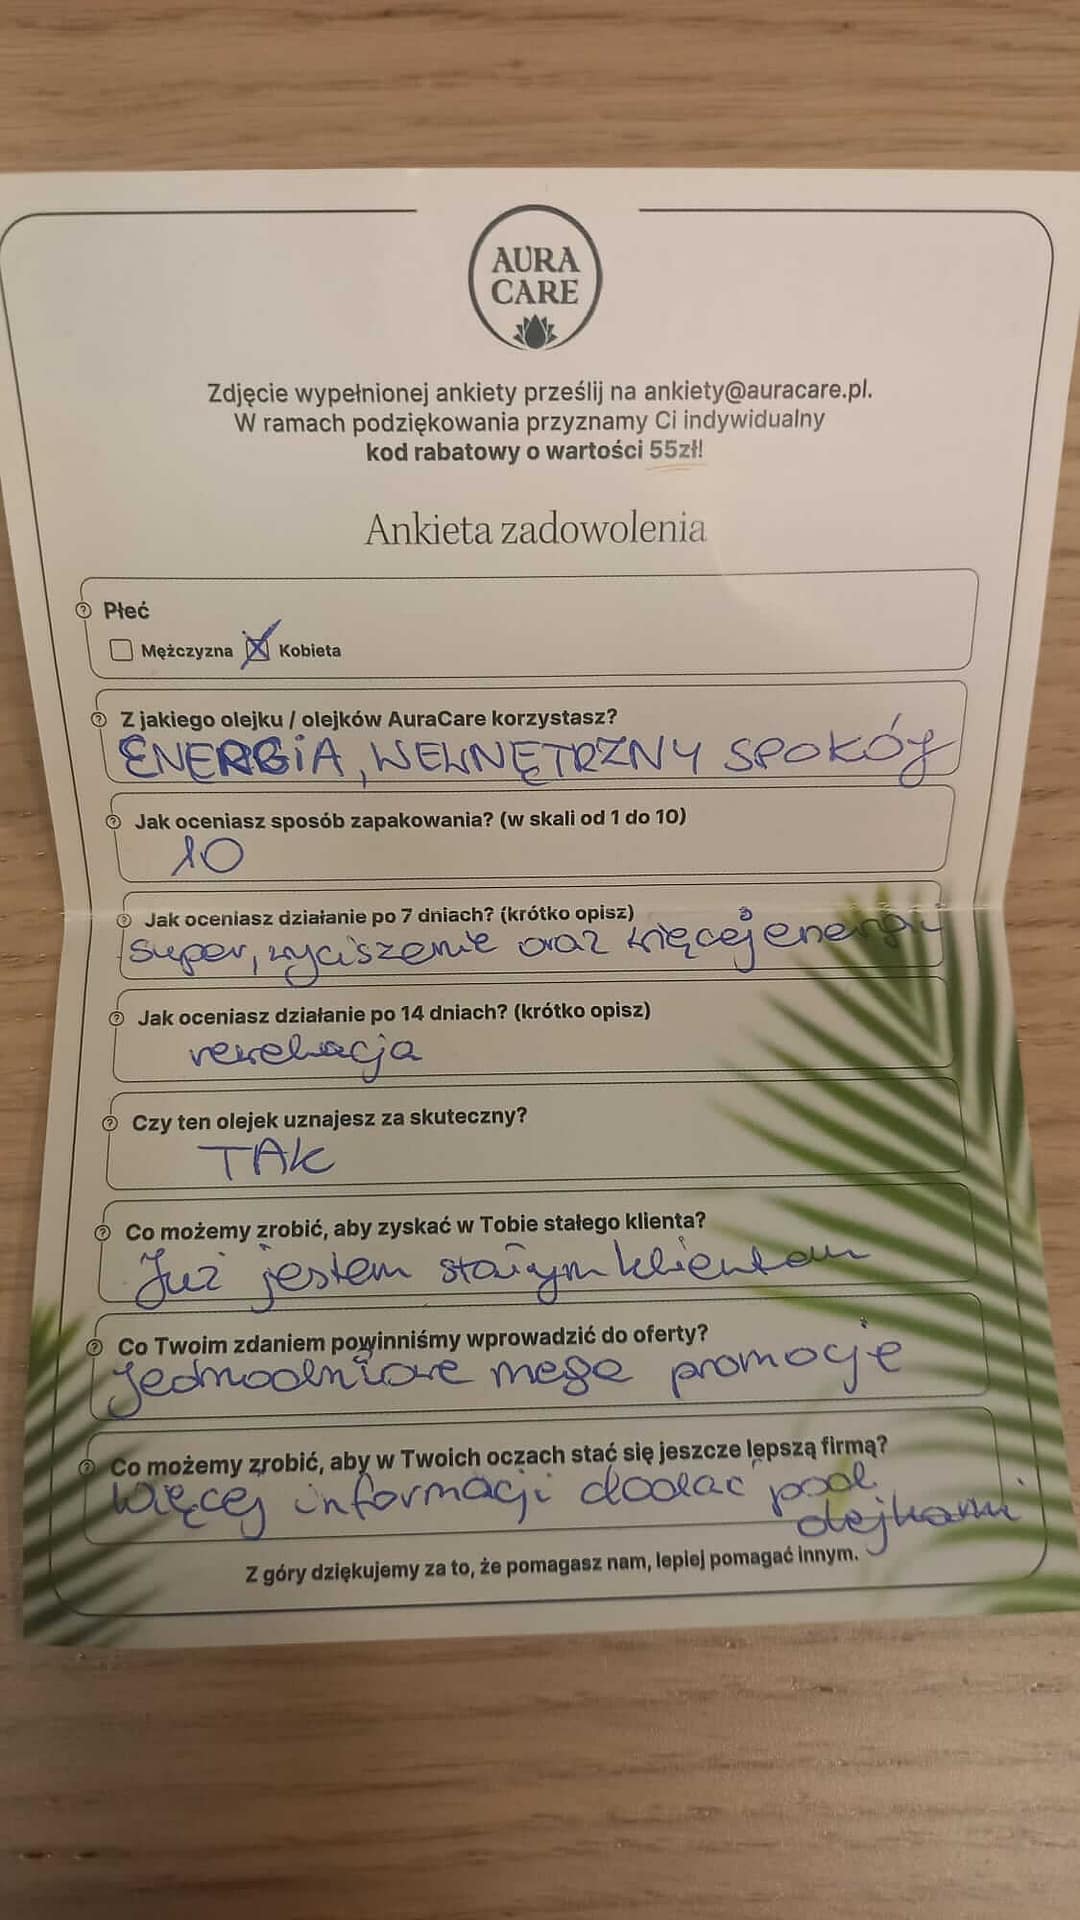 AURA
CARE
Zdjęcie wypełnionej ankiety prześlij na ankiety@auracare.pl.
W ramach podziękowania przyznamy Ci indywidualny
kod rabatowy o wartości 55zł!
Ankieta zadowolenia
Płeć
Mężczyzna Kobieta
Z jakiego olejku / olejków AuraCare korzystasz?
ENERGiA, WEWNĘTRZNY SPOKÓJ
Jak oceniasz sposób zapakowania? (w skali od 1 do 10)
10
Jak oceniasz działanie po 7 dniach? (krótko opisz)
super, wyciszenie oraz więcej energii
Jak oceniasz działanie po 14 dniach? (krótko opisz)
rewelacja
Czy ten olejek uznajesz za skuteczny?
TAK
Co możemy zrobić, aby zyskać w Tobie stałego klienta?
Już jestem stałym klientem
Co Twoim zdaniem powinniśmy wprowadzić do oferty?
Jednodniowe mega promocje
Co możemy zrobić, aby w Twoich oczach stać się jeszcze lepszą firmą?
Więcej informacji dodać pod
olejkami
Z góry dziękujemy za to, że pomagasz nam, lepiej pomagać innym.